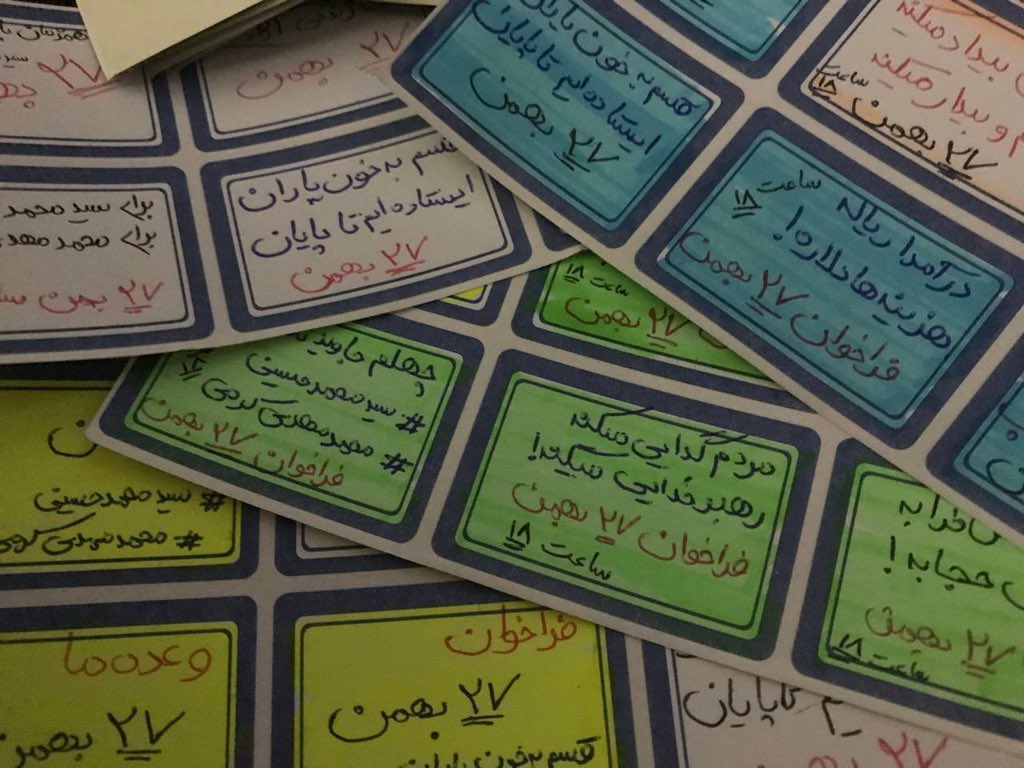 ۲۷ بهمن
۲۷ بهمن
برای سید محمد
برای محمد مهدی
۲۷ بهمن
قسم به خون یاران
ایستاده ایم تا پایان
۲۷ بهمن
قسم به خون یاران
ایستاده ایم تا پایان
۲۷ بهمن
بیداد میکنه
و بیدار میکنه
ساعت ۱۸
۲۷ بهمن
ساعت ۱۸
درآمدا ریاله
هزینه ها دلاره!
فراخوان ۲۷ بهمن
ساعت ۱۸
۲۷ بهمن
چهلم جاوید
# سید محمد حسینی
# محمد مهدی کرمی
فراخوان ۲۷ بهمن
۱۸
مردم گدایی میکنه
رهبر خدایی میکنه!
فراخوان ۲۷ بهمن
ساعت ۱۸
حجابه!
۲۷ بهمن
ساعت ۱۸
# سید محمد حسینی
# محمد مهدی کرمی
وعده ما
۲۷ بهمن
فراخوان
۲۷ بهمن
قسم به خون یاران
تا پایان
۲۷